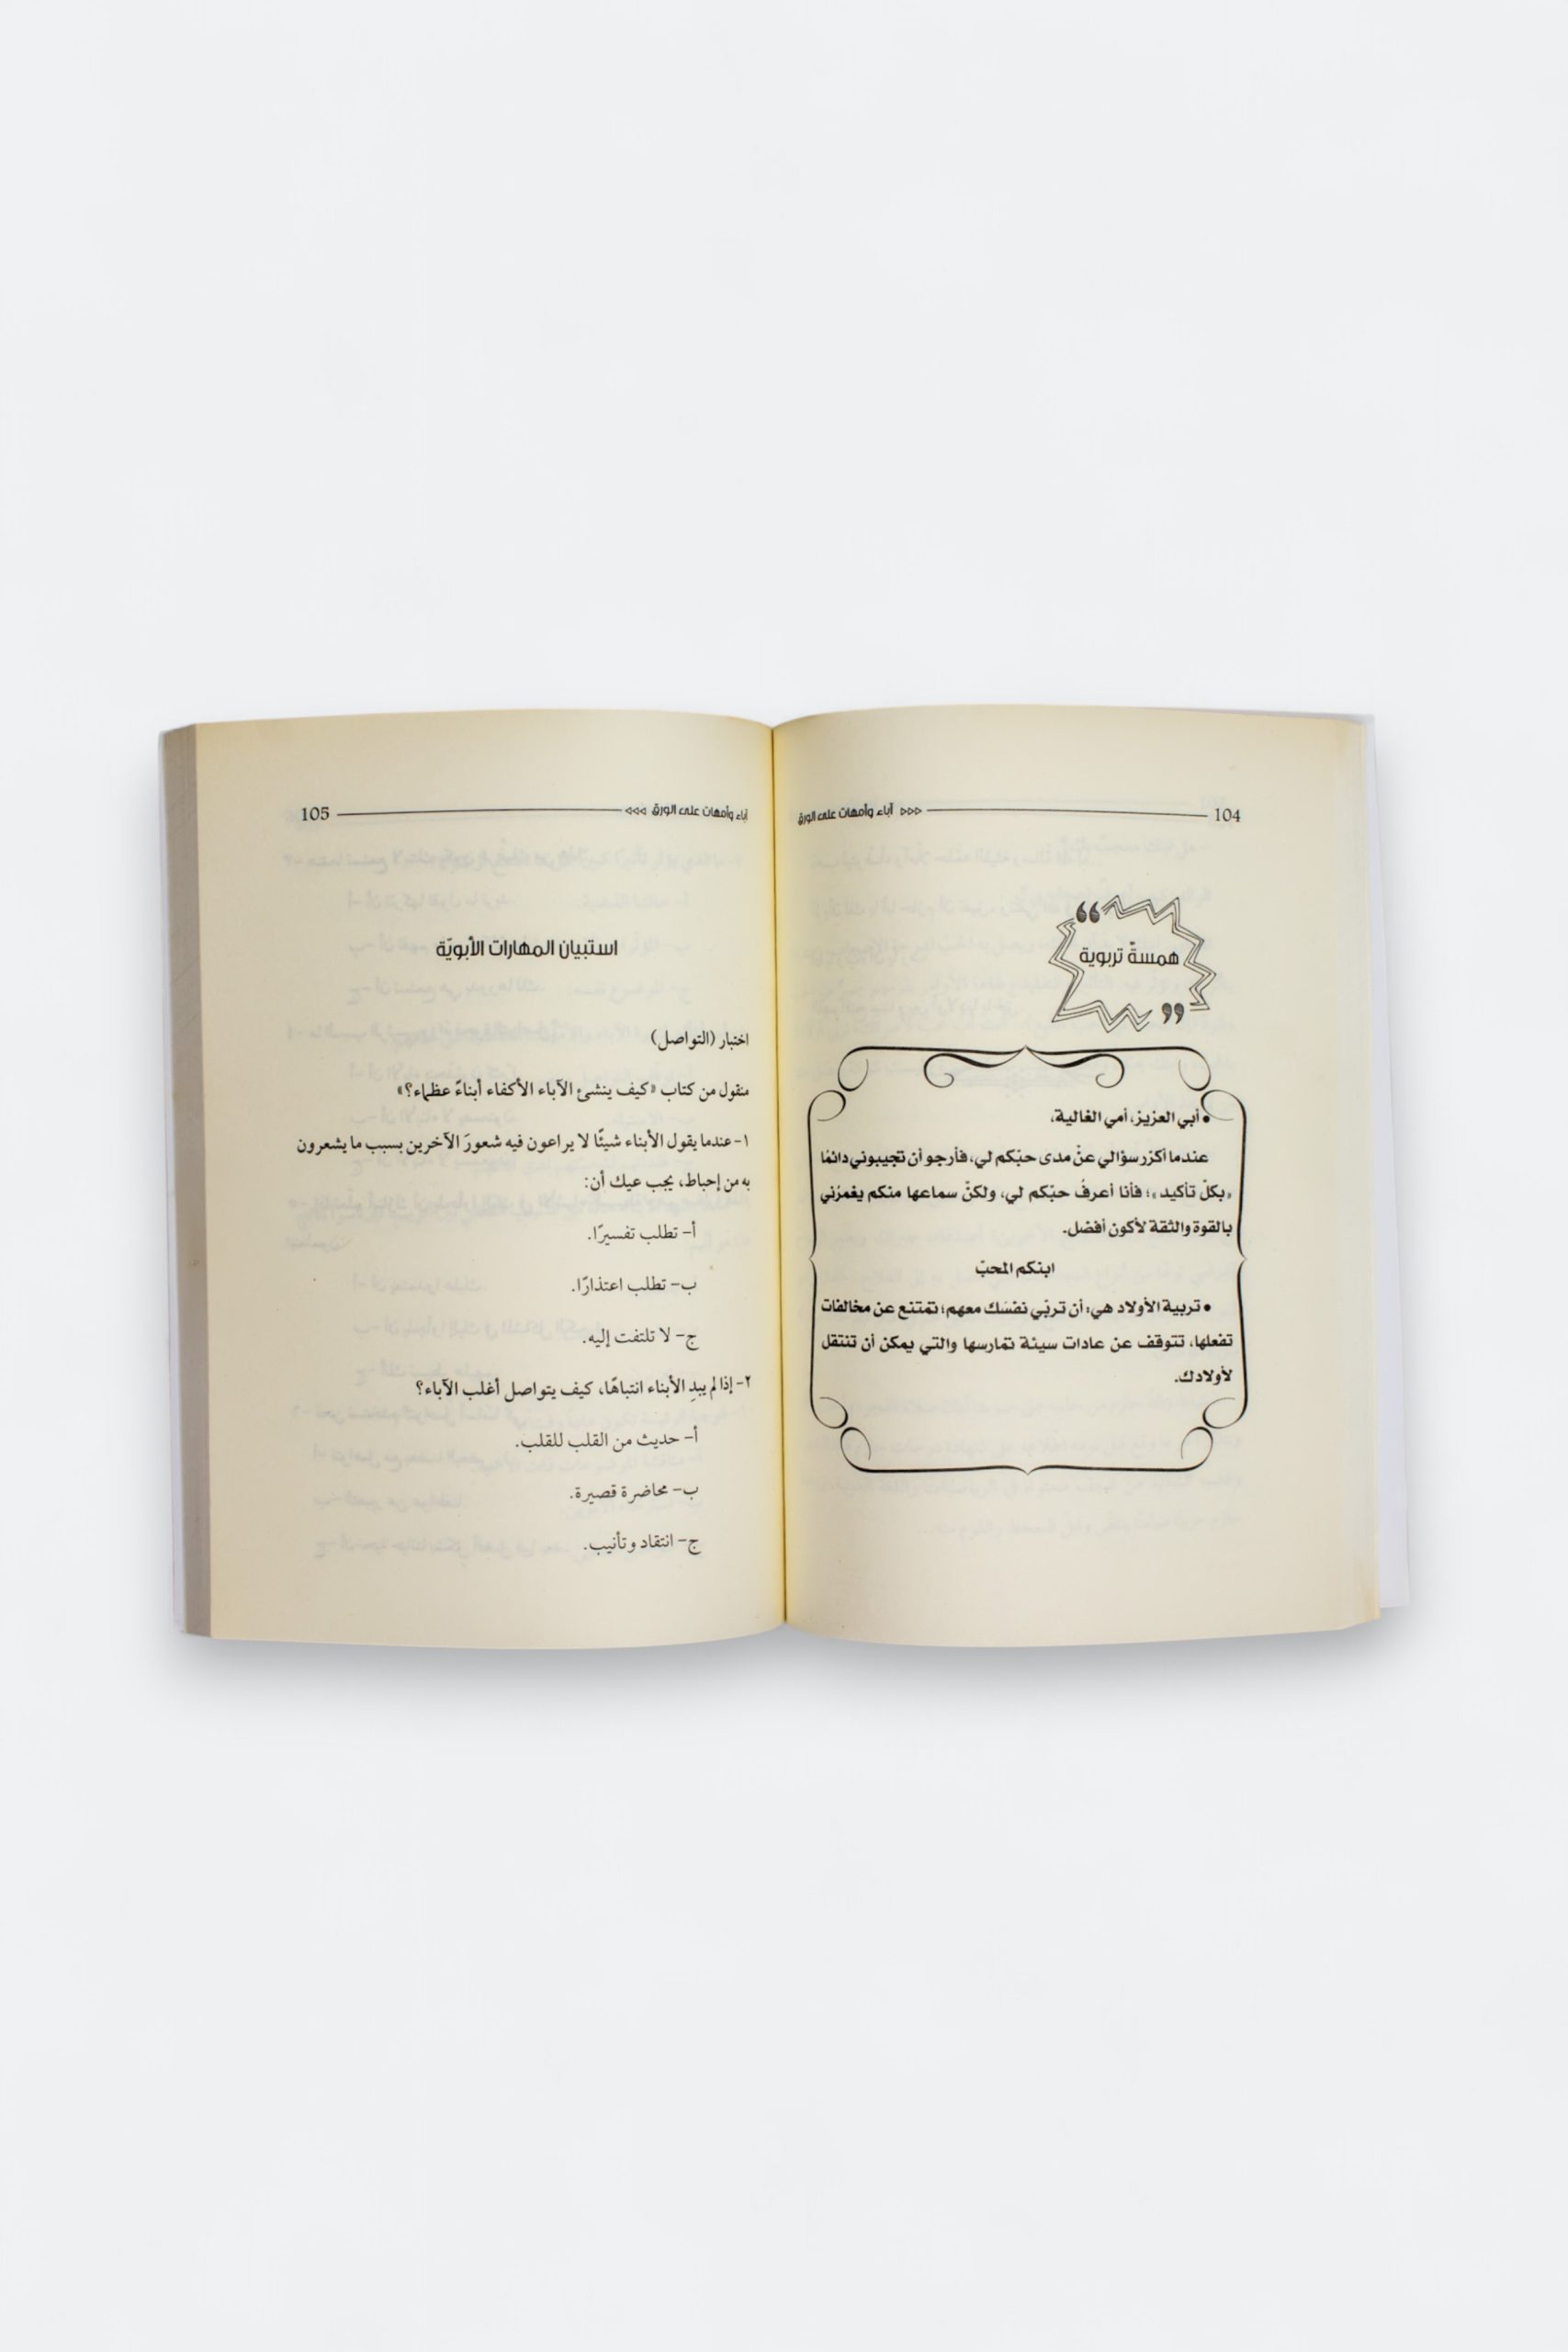 104 آباء وأمهات على الورق
همسةً تربوية
• أبي العزيز، أمي الغالية،
عندما أكرّر سؤالي عنْ مدى حبّكم لي، فأرجو أن تجيبوني دائمًا
«بكلّ تأكيد»؛ فأنا أعرفُ حبّكم لي، ولكنّ سماعها منكم يغمرُني
بالقوة والثقة لأكون أفضل.
ابنكم المحبّ
• تربية الأولاد هي: أن تربّي نفسَك معهم؛ تمتنع عن مخالفات
تفعلها، تتوقف عن عادات سيئة تمارسها والتي يمكن أن تنتقل
لأولادك.
آباء وأمهات على الورق 105
استبيان المهارات الأبويّة
اختبار (التواصل)
منقول من كتاب «كيف ينشئ الآباء الأكفاء أبناءً عظماء؟»
١- عندما يقول الأبناء شيئًا لا يراعون فيه شعورَ الآخرين بسبب ما يشعرون
به من إحباط، يجب عيك أن:
أ- تطلب تفسيرًا.
ب- تطلب اعتذارًا.
ج- لا تلتفت إليه.
٢- إذا لم يبدِ الأبناء انتباهًا، كيف يتواصل أغلب الآباء؟
أ- حديث من القلب للقلب.
ب- محاضرة قصيرة.
ج- انتقاد وتأنيب.